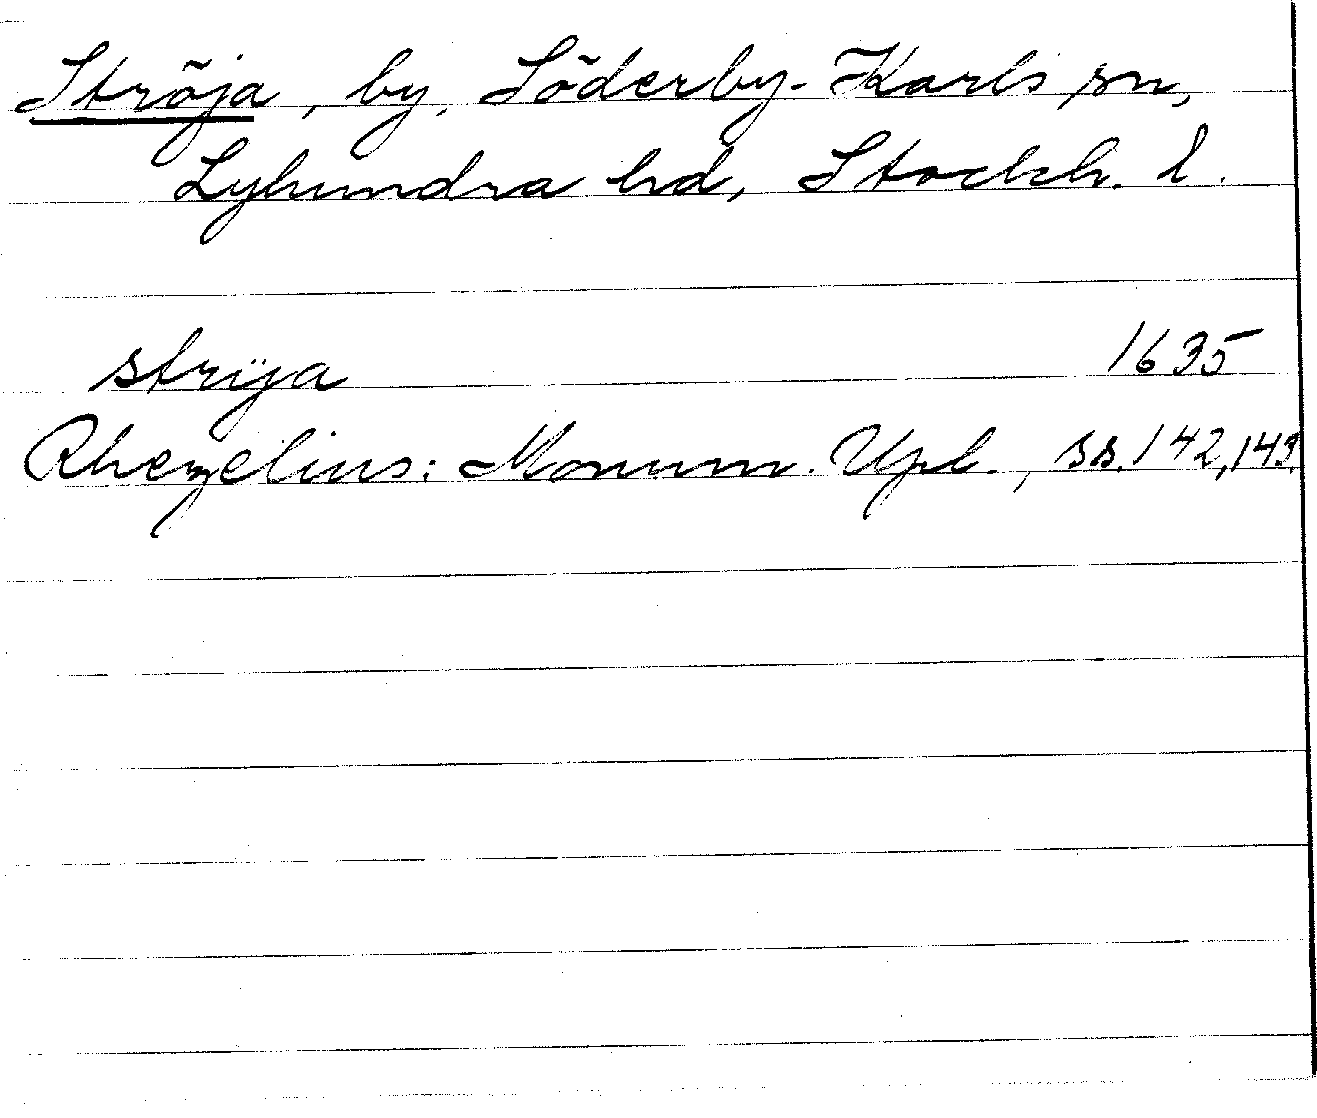 Ströja, by, Söderby-Karls sn,
Lyhundra hd, Stockh. l.
strÿa 1635
Rhezelius: Monum. Upl., ss. 142, 143.